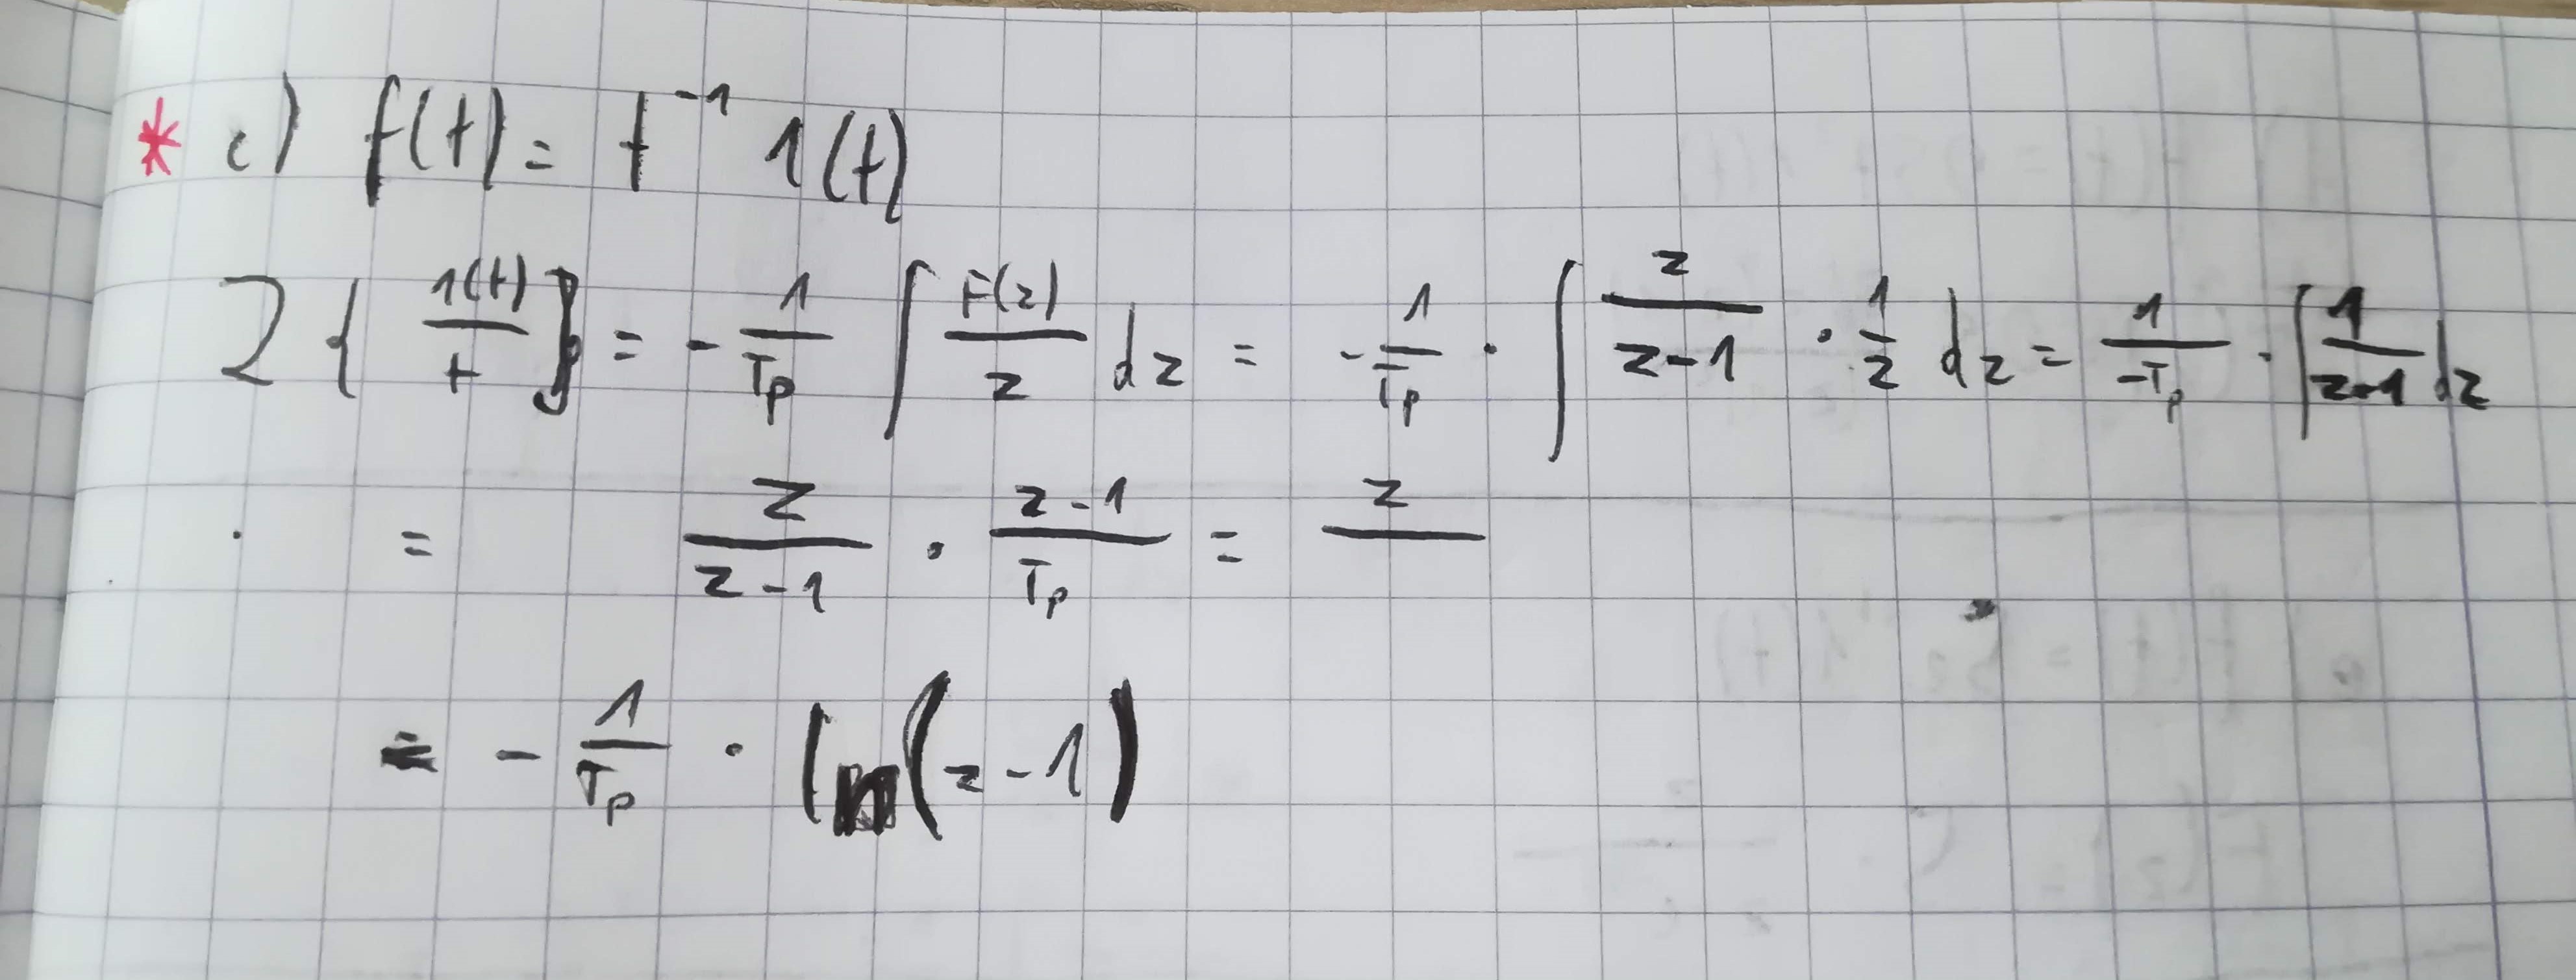 * c) f(t) = t⁻¹ 1(t)
Z { 1(t)/t } = - 1/Tp ∫ F(z)/z dz = - 1/Tp · ∫ z/(z-1) · 1/z dz = 1/-Tp · ∫ 1/(z-1) dz
· = z/(z-1) · (z-1)/Tp = z/
= - 1/Tp · ln(z-1)